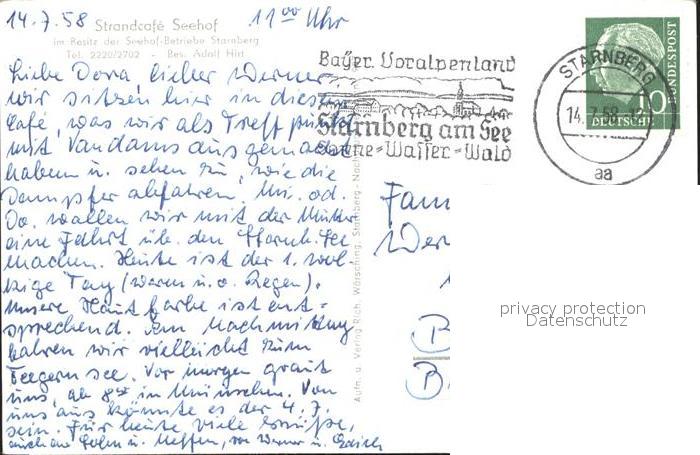 14.7.58 11 00 Uhr
Strandcafé Seehof
im Besitz der Seehof-Betriebe Starnberg
Tel. 2220/2702 - Bes. Adolf Hirt
Liebe Dora lieber Werner,
wir sitzen hier in diesem
Café, was wir als Treffpunkt
mit Vandams ausgemacht
haben u. sehen zu, wie die
Dampfer abfahren. Mi. od.
Do. wollen wir mit der Mutter
eine Fahrt üb. den Starnb. See
machen. Heute ist der 1. wol-
kige Tag (warm u. o. Regen).
Unsere Hautfarbe ist ent-
sprechend. Am Nachmittag
fahren wir vielleicht zum
Tegernsee. Vor morgen graut
uns, ab 8 in München. Von
uns aus könnte es der 4.7.
sein. Für heute viele Grüße,
auch an Sohn u. Neffen, von Werner u.
Bayer. Voralpenland
Starnberg am See
Sonne-Wasser-Wald
STARNBERG
14.7.58-12
aa
DEUTSCHE
BUNDESPOST
10
Aufn. u. Verlag Rich. Wörsching, Starnberg - Nachdr
Fam
Wer
B
B
privacy protection
Datenschutz